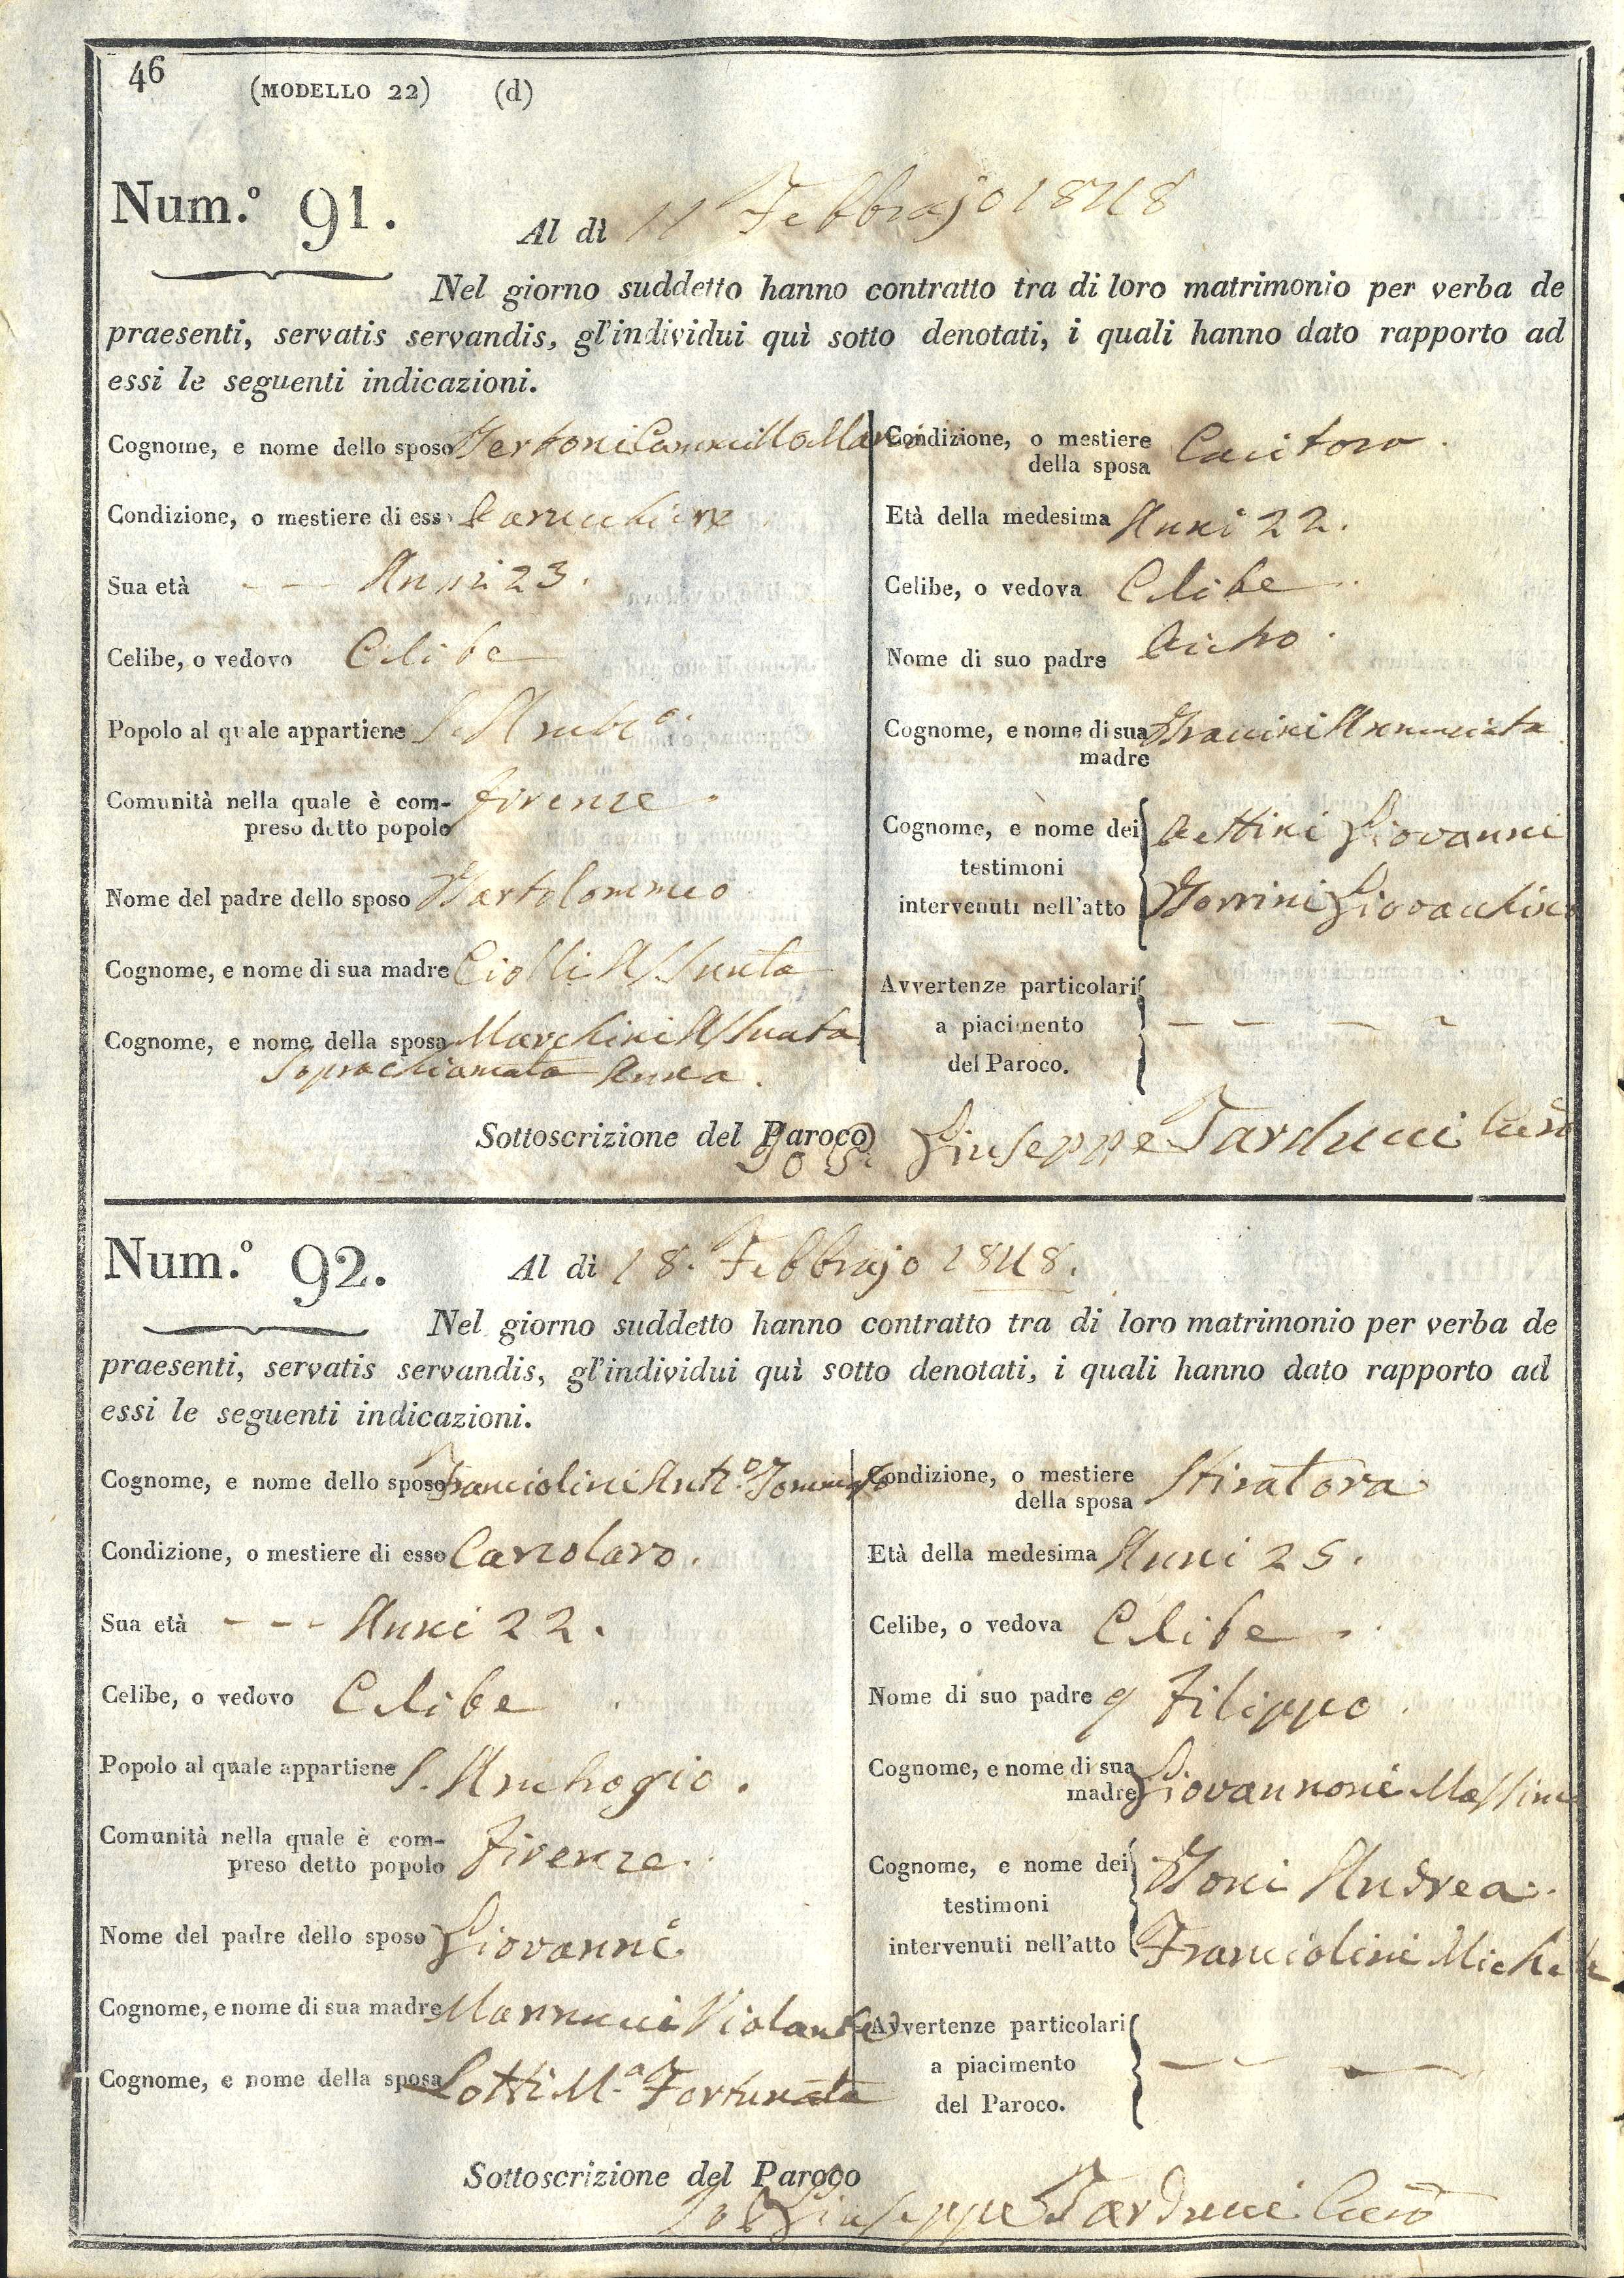 46
(MODELLO 22) (d)
Num.º 91.
Al dì 11 Febbrajo 1848
Nel giorno suddetto hanno contratto tra di loro matrimonio per verba de
praesenti, servatis servandis, gl'individui quì sotto denotati, i quali hanno dato rapporto ad
essi le seguenti indicazioni.
Cognome, e nome dello sposo
Condizione, o mestiere di esso Parucchiere
Sua età --- Anni 23.
Celibe, o vedovo Celibe
Popolo al quale appartiene S. Amb.º
Comunità nella quale è com-
preso detto popolo Firenze
Nome del padre dello sposo Bartolommeo
Cognome, e nome di sua madre Ciolli Assunta
Cognome, e nome della sposa Marchini Assunta
Soprachiamata Anna.
Condizione, o mestiere
della sposa Cucitora
Età della medesima Anni 22.
Celibe, o vedova Celibe
Nome di suo padre Pietro
Cognome, e nome di sua Braccini Annunciata
madre
Cognome, e nome dei Bettini Giovanni
testimoni
intervenuti nell'atto Borrini Giovacchino
Avvertenze particolari
a piacimento
del Paroco.
Sottoscrizione del Paroco Giuseppe Tarducci Curo
Num.º 92.
Al dì 18. Febbrajo 1848.
Nel giorno suddetto hanno contratto tra di loro matrimonio per verba de
praesenti, servatis servandis, gl'individui quì sotto denotati, i quali hanno dato rapporto ad
essi le seguenti indicazioni.
Cognome, e nome dello sposo Franciolini Ant.º Tommaso
Condizione, o mestiere di esso Carzolaro.
Sua età --- Anni 22.
Celibe, o vedovo Celibe
Popolo al quale appartiene S. Ambrogio.
Comunità nella quale è com-
preso detto popolo Firenze.
Nome del padre dello sposo Giovanni
Cognome, e nome di sua madre Mannucci Violante
Cognome, e nome della sposa Lotti M.a Fortunata
Condizione, o mestiere Stiratora
della sposa
Età della medesima Anni 25.
Celibe, o vedova Celibe
Nome di suo padre q Filippo
Cognome, e nome di sua
madre Giovannoni Massima
Cognome, e nome dei Boni Andrea
testimoni
intervenuti nell'atto Franciolini Michele
Avvertenze particolari
a piacimento
del Paroco.
Sottoscrizione del Paroco
Giuseppe Tarducci Curo